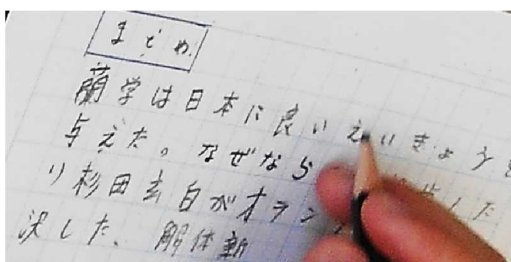 まとめ
蘭学は日本に良いえいきょうを
与えた。なぜなら
り杉田玄白がオラン
訳した、解体新